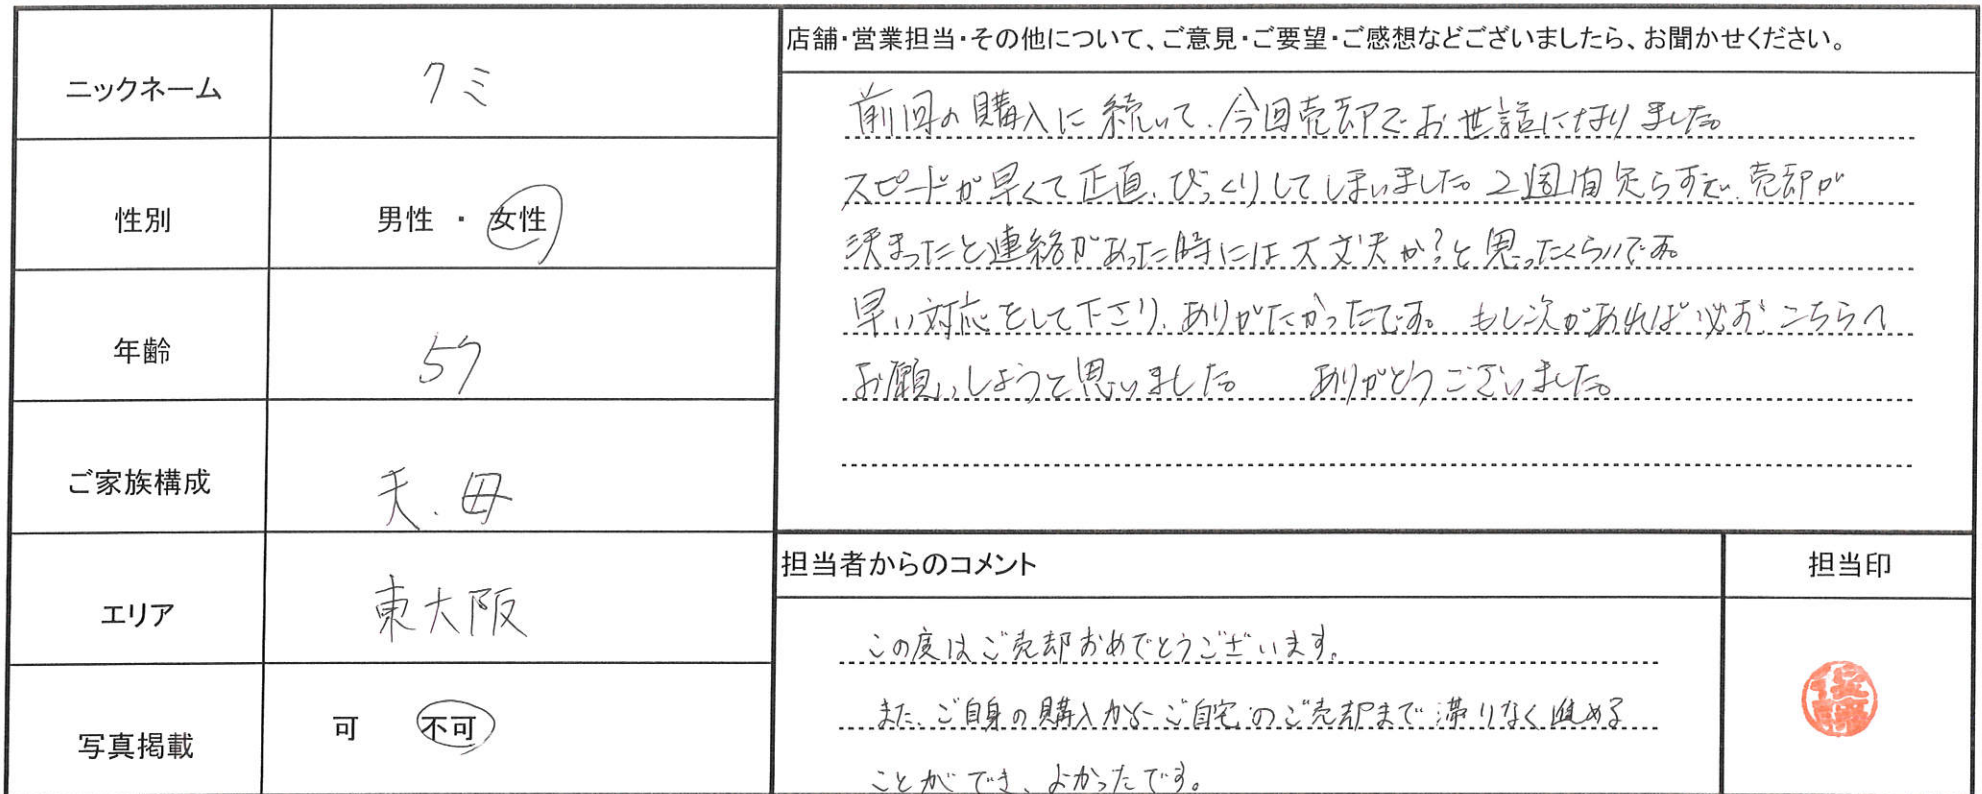 ニックネーム
クミ
性別
男性 ・ 女性
年齢
57
ご家族構成
夫、母
エリア
東大阪
写真掲載
可 不可
店舗・営業担当・その他について、ご意見・ご要望・ご感想などございましたら、お聞かせください。
前回の購入に続いて、今回売却でお世話になりました。
スピードが早くて正直、びっくりしてしまいました。2週間足らずで、売却が
決まったと連絡があった時には大丈夫か?と思ったくらいです。
早い対応をして下さり、ありがたかったです。もし次があれば必ずこちらへ
お願いしようと思いました。 ありがとうございました。
担当者からのコメント
担当印
この度はご売却おめでとうございます。
また、ご自身の購入からご自宅のご売却まで滞りなく進める
ことができ、よかったです。